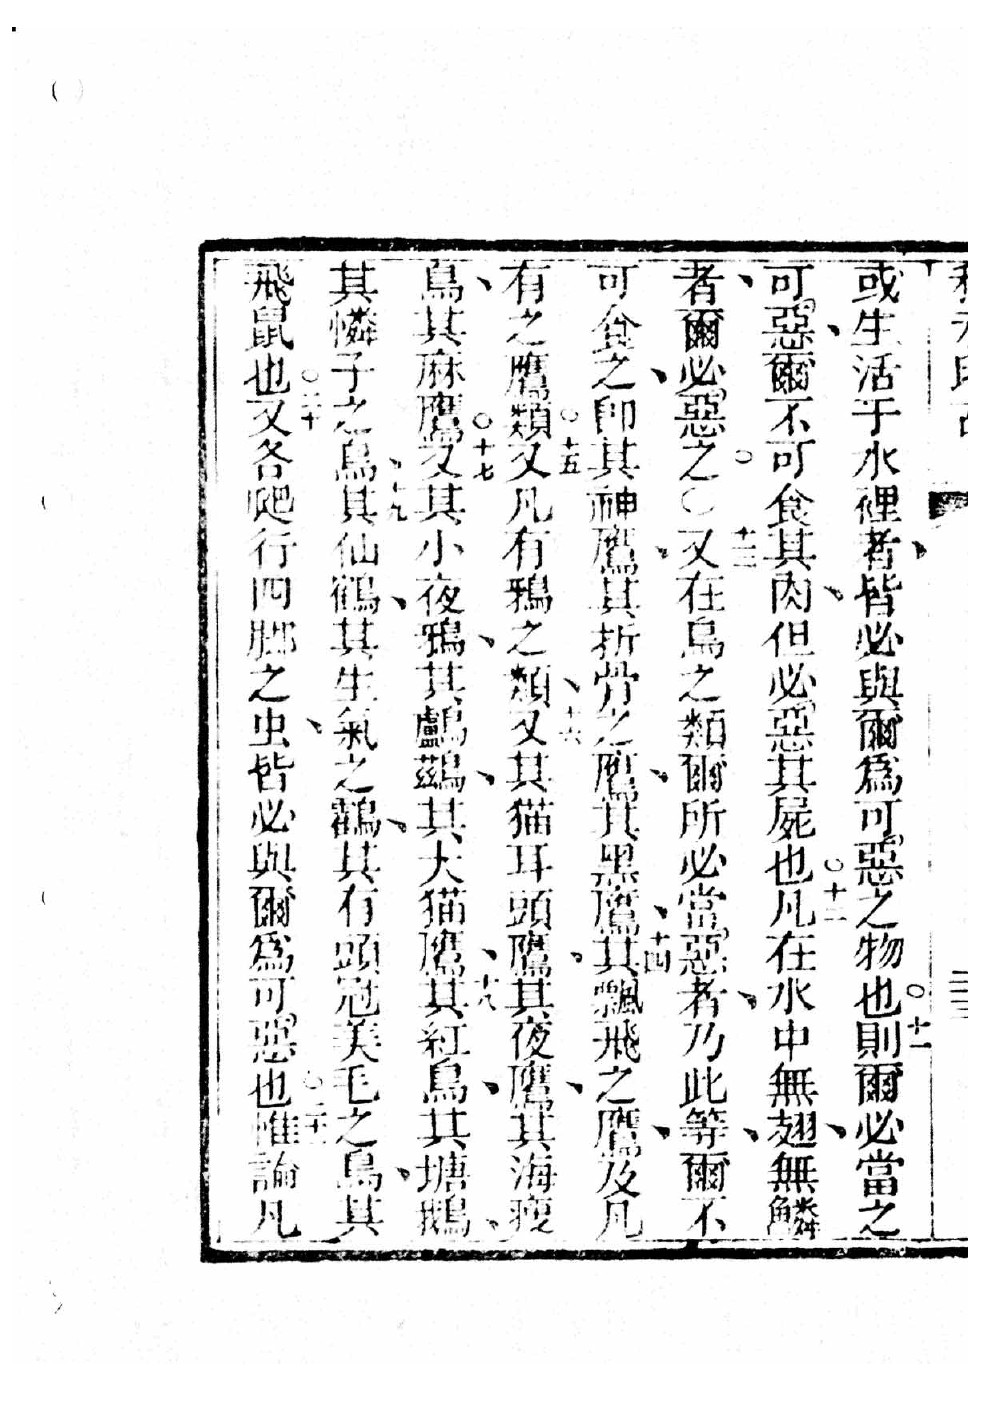 或生活于水裡者皆必與爾爲可惡之物也○十一則爾必當之
可惡爾不可食其肉但必惡其屍也○十二凡在水中無翅無鱗
者爾必惡之○十三又在鳥之類爾所必當惡者乃此等爾不
可食之卽其神鷹其折骨之鷹其黑鷹十四其飄飛之鷹及凡
有之鷹類○十五又凡有鴉之類十六又其猫耳頭鷹其夜鷹其海
鳥其麻鷹○十七又其小夜鴉其鸕鷀其大猫鷹十八其紅鳥其塘鵝
其憐子之鳥十九其仙鶴其生氣之鸛其有頭冠美毛之鳥其
飛鼠也○二十又各爬行四脚之虫皆必與爾爲可惡也○二十一惟論凡